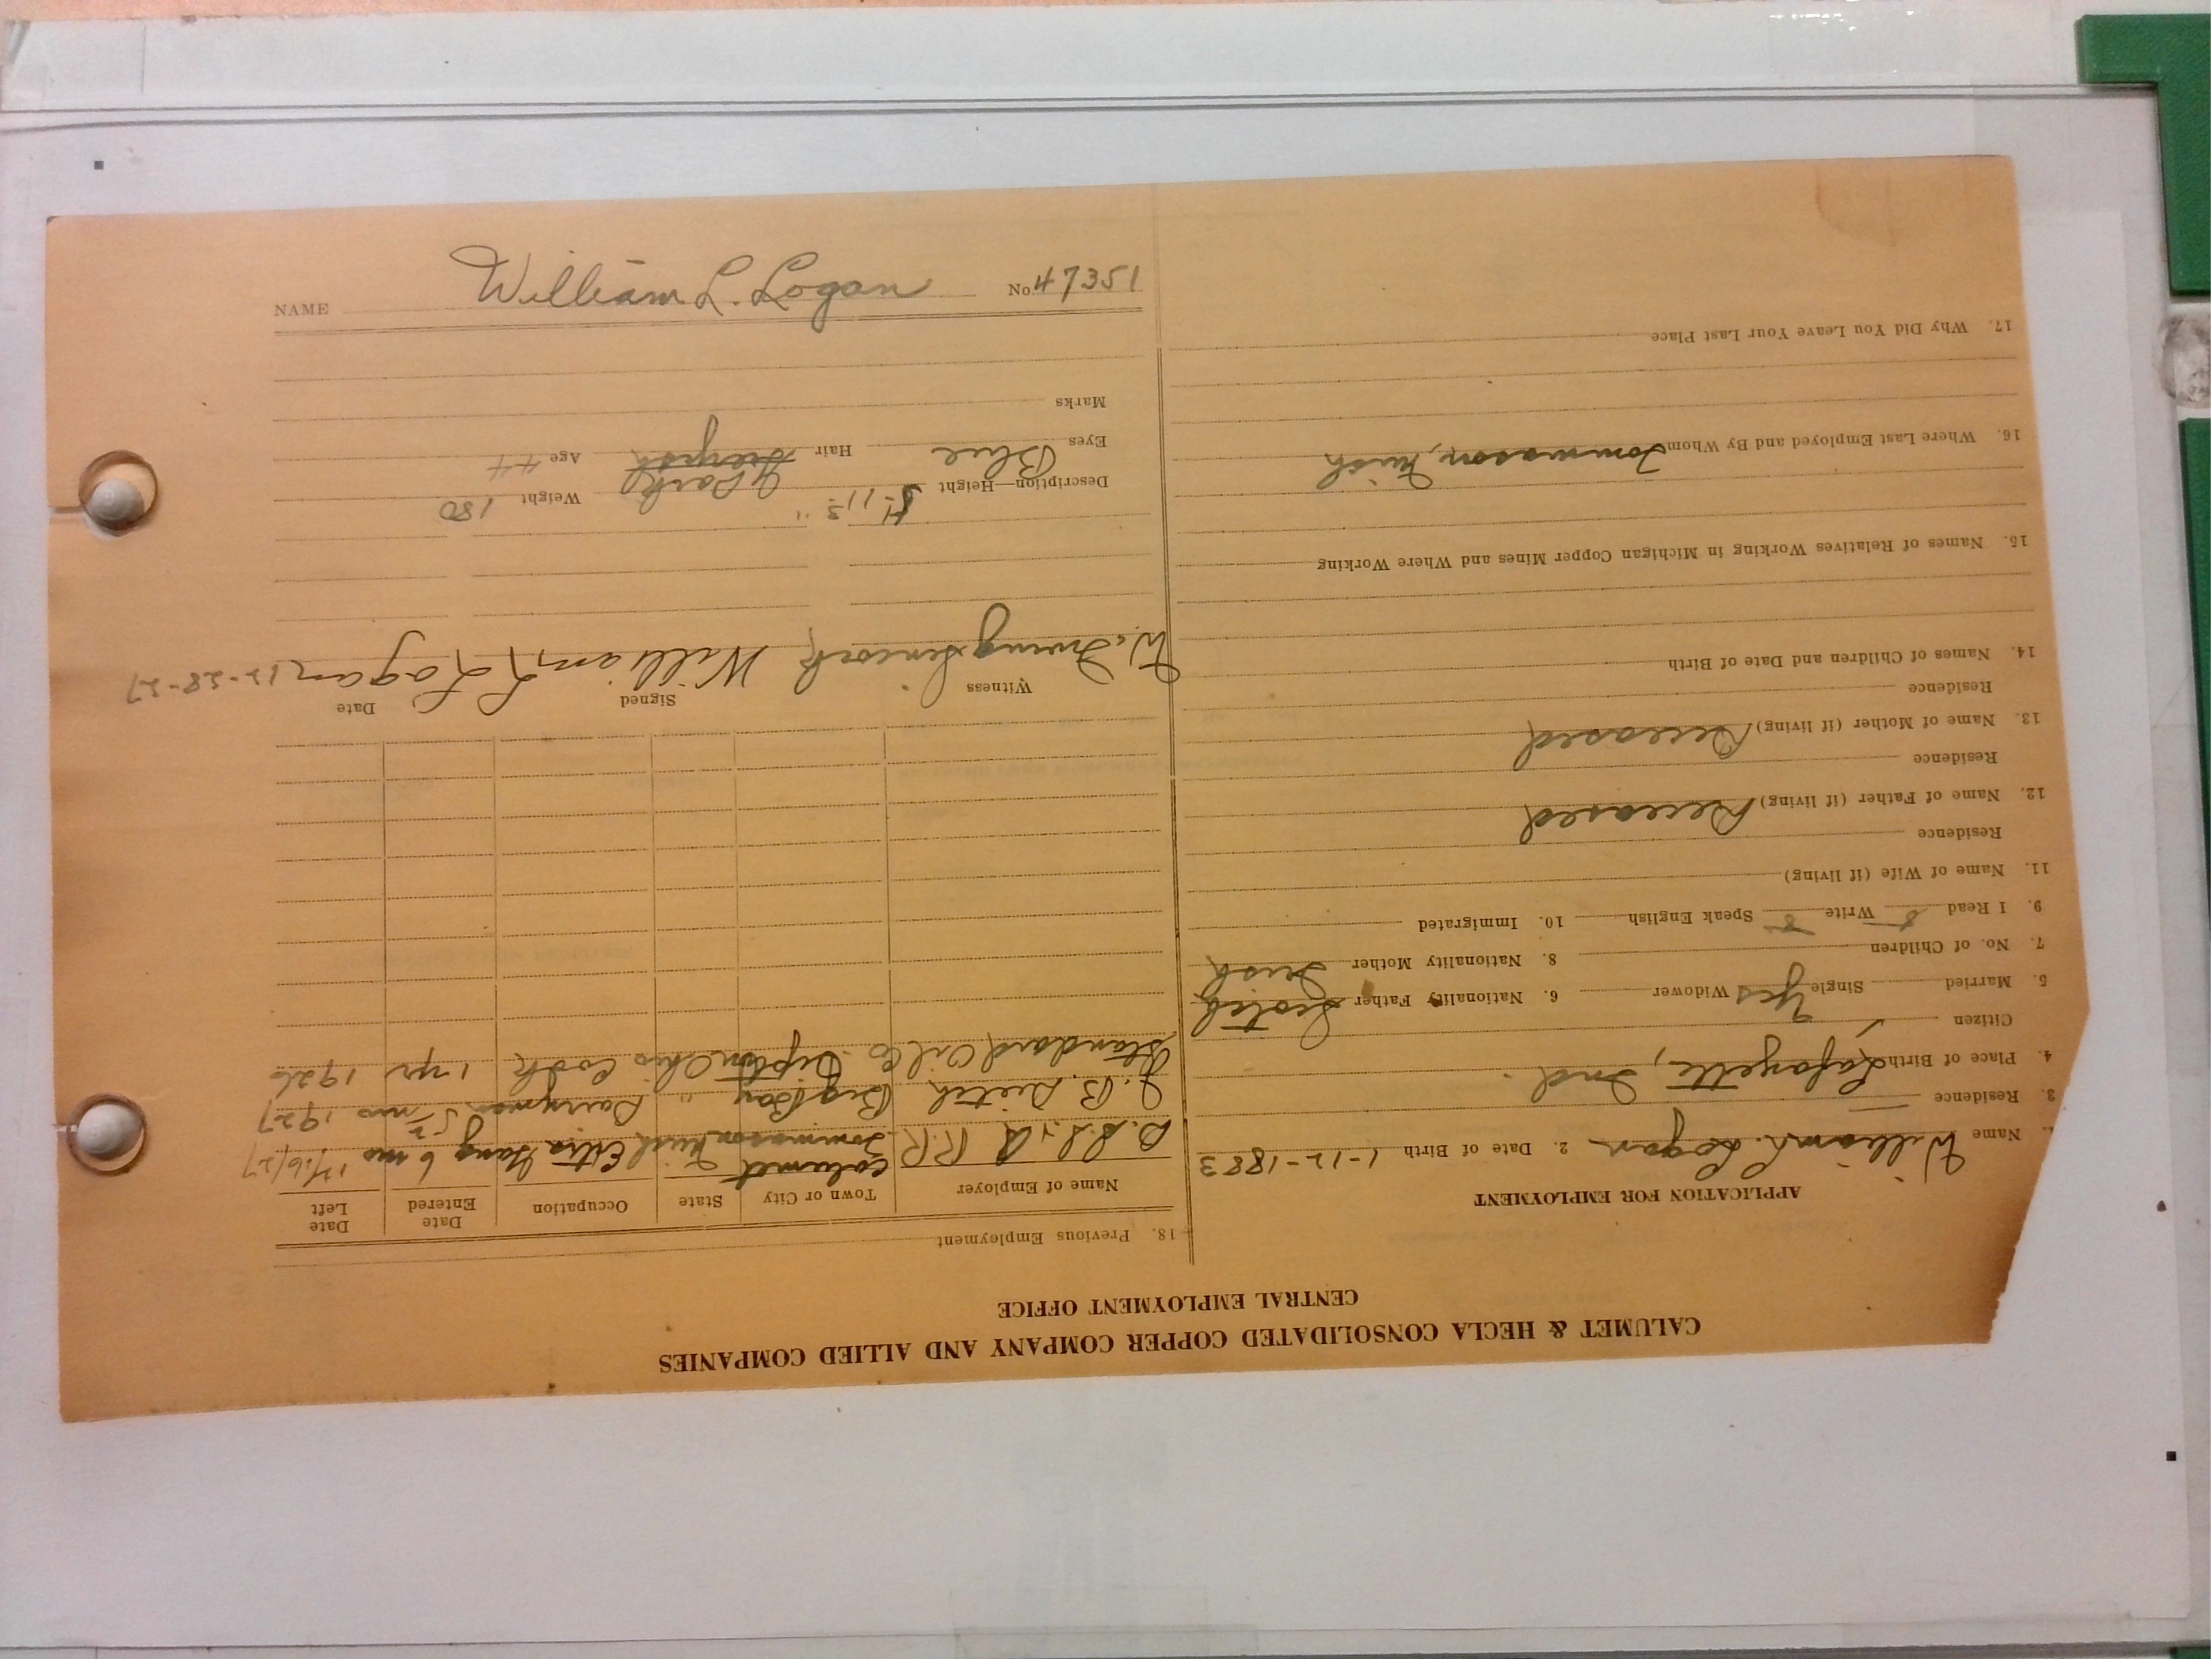 CALUMET & HECLA CONSOLIDATED COPPER COMPANY AND ALLIED COMPANIES
CENTRAL EMPLOYMENT OFFICE
APPLICATION FOR EMPLOYMENT
1. Name William L. Logan 2. Date of Birth 1-12-1883
3. Residence
4. Place of Birth Lafayette, Ind.
Citizen ✓
5. Married Single Yes Widower 6. Nationality Father Scotch
7. No. of Children 8. Nationality Mother Irish
9. I Read Write Speak English 10. Immigrated
11. Name of Wife (if living)
Residence
12. Name of Father (if living) Deceased
Residence
13. Name of Mother (if living) Deceased
Residence
14. Names of Children and Date of Birth
15. Names of Relatives Working in Michigan Copper Mines and Where Working
16. Where Last Employed and By Whom Tommason, Mich
17. Why Did You Leave Your Last Place
18. Previous Employment
Name of Employer Town or City State Occupation Date Entered Date Left
Calumet
R.R. Tommason Mich Extra Gang 6 mo 12/26/27
J. B. Big Bay " Dairyman 5 mo 1927
Standard Oil Co Ohio Cook 1 yr 1926
Witness Signed Date
W. Irving William L Logan 12-28-27
Description—Height 5-11 ½" Weight 180
Eyes Blue Hair Dark Greyish Age 44
Marks
NAME William L. Logan No 47351